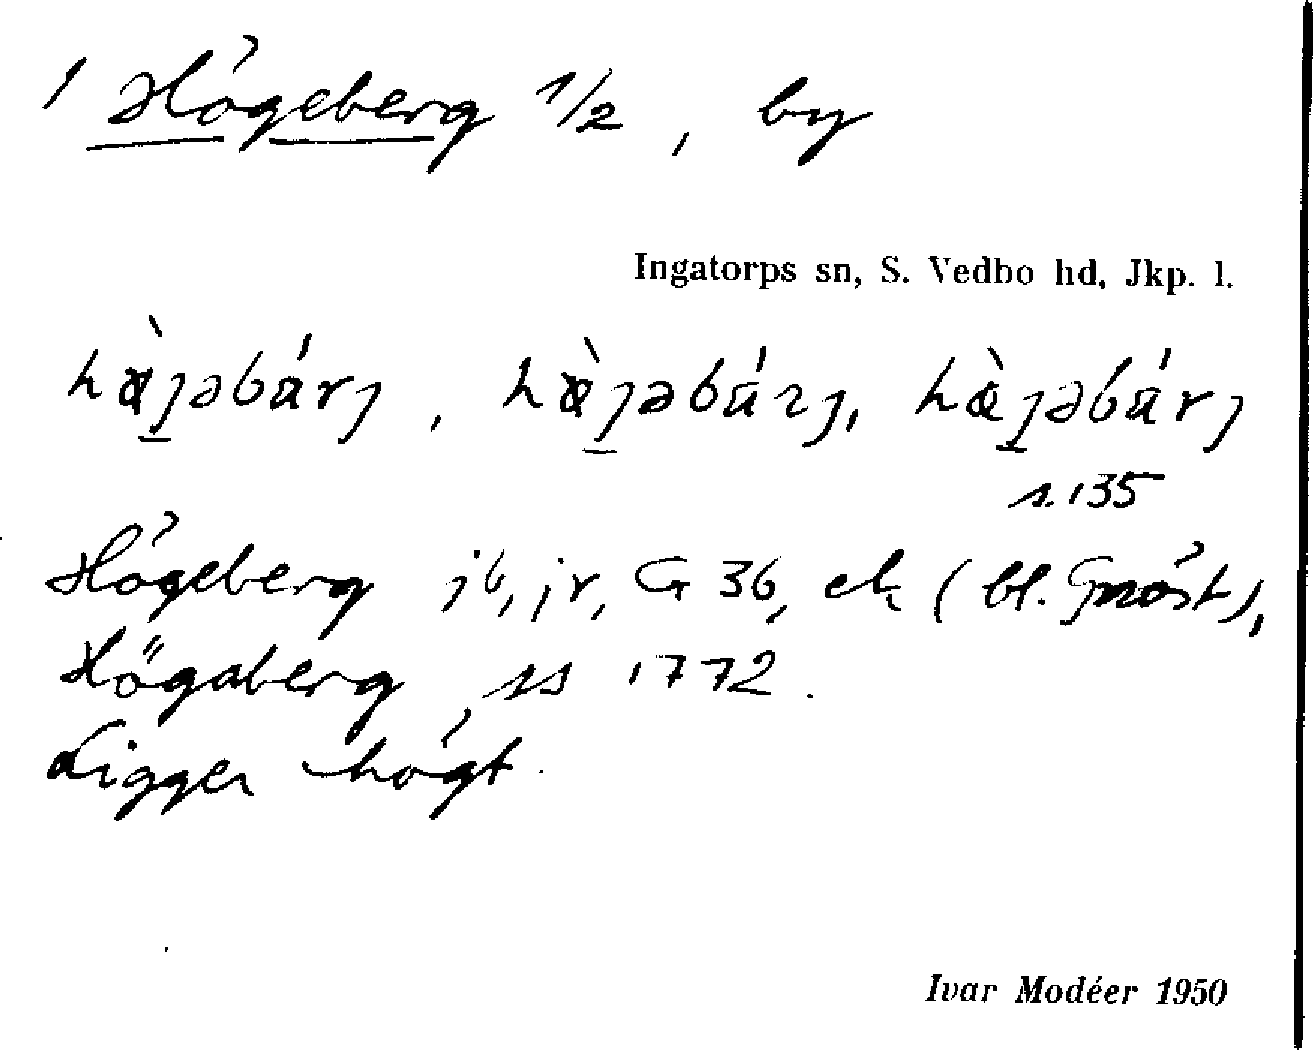 1 Högeberg 1/2, by
Ingatorps sn, S. Vedbo hd, Jkp. l.
hæ̀ȷəbárȷ, hæ̀ȷəbárȷ, hæ̀ȷəbárȷ
s. 135
Högeberg jb, jr, G 36, ek (bl.
Högaberg ss 1772.
Ligger högt.
Ivar Modéer 1950